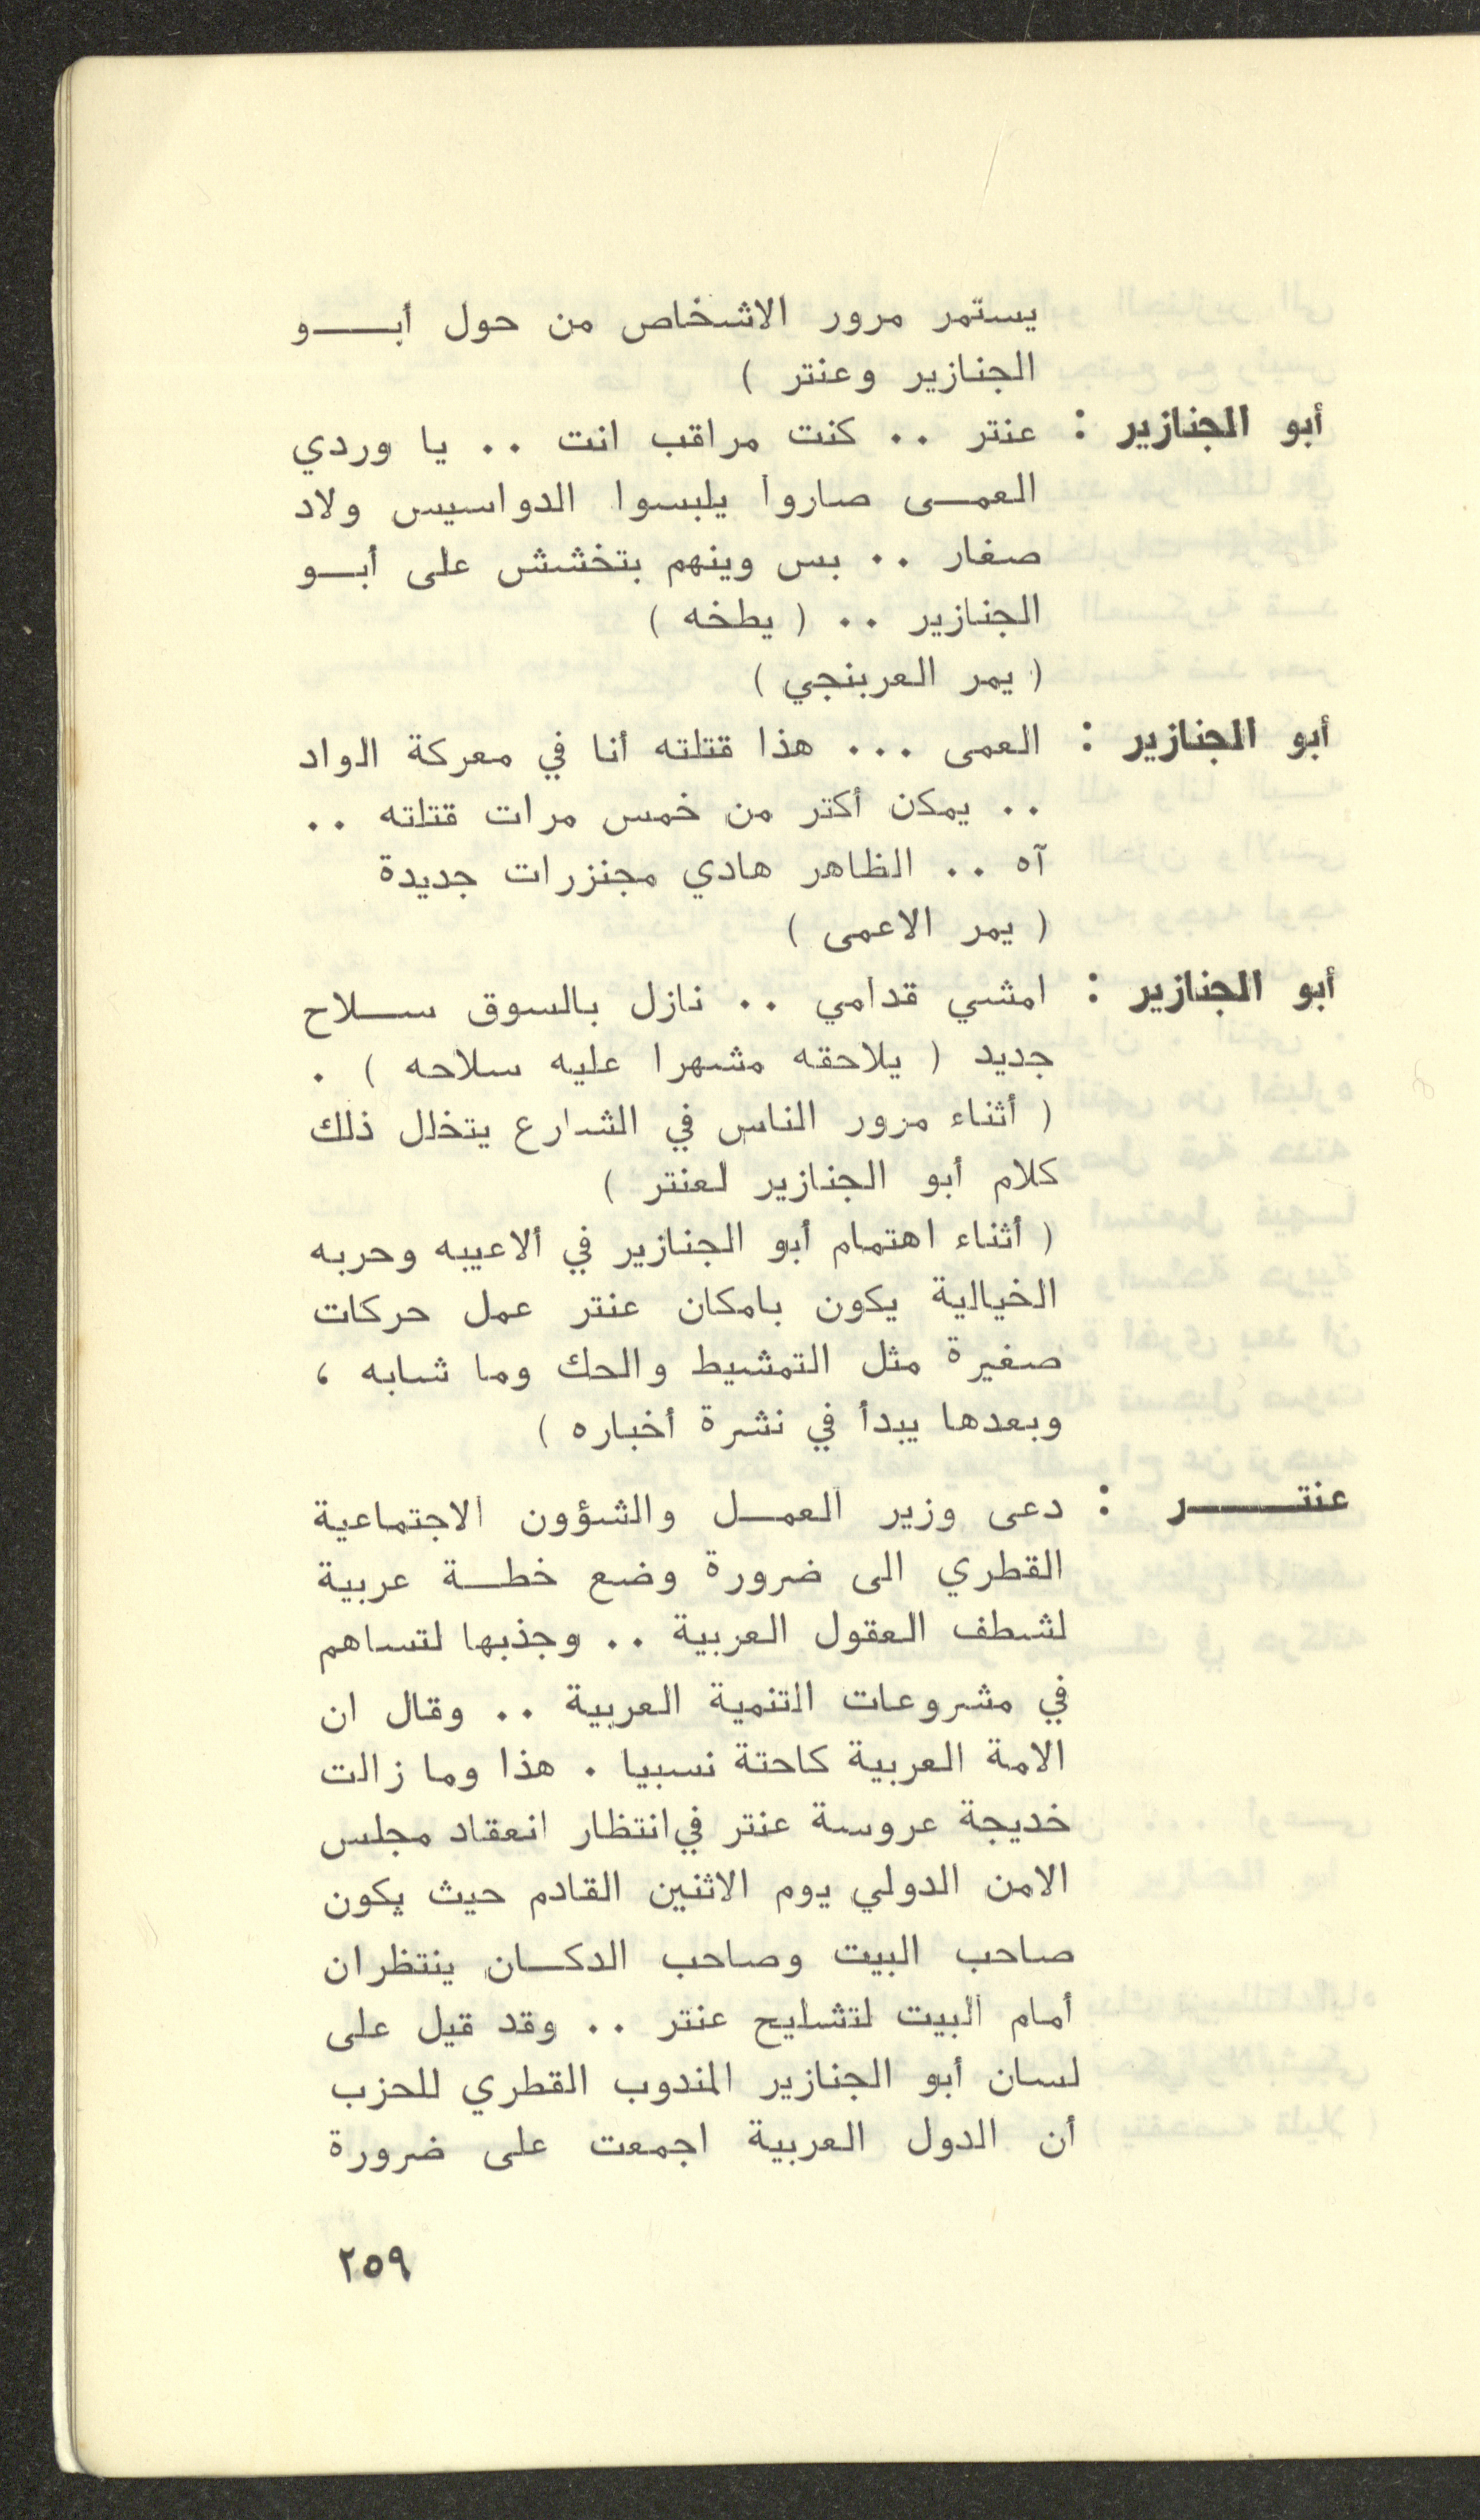 يستمر مرور الاشخاص من حول أبـــو
الجنازير وعنتر )
أبو الجنازير : عنتر .. كنت مراقب انت .. يا وردي
العمـــى صاروا يلبسوا الدواسيس ولاد
صغار .. بس وينهم بتخشش على أبـــو
الجنازير .. ( يطخه )
( يمر العربنجي )
أبو الجنازير : العمى ... هذا قتلته أنا في معركة الواد
.. يمكن أكتر من خمس مرات قتلته ..
آه .. الظاهر هادي مجنزرات جديدة
( يمر الاعمى )
أبو الجنازير : امشي قدامي .. نازل بالسوق ســـلاح
جديد ( يلاحقه مشهرا عليه سلاحه ) .
( أثناء مرور الناس في الشارع يتخلل ذلك
كلام أبو الجنازير لعنتر )
( أثناء اهتمام أبو الجنازير في ألاعيبه وحربه
الخيالية يكون بامكان عنتر عمل حركات
صغيرة مثل التمشيط والحك وما شابه ،
وبعدها يبدأ في نشرة أخباره )
عنتـــــــر : دعى وزير العمـــل والشؤون الاجتماعية
القطري الى ضرورة وضع خطـــة عربية
لشطف العقول العربية .. وجذبها لتساهم
في مشروعات التنمية العربية .. وقال ان
الامة العربية كاحتة نسبيا . هذا وما زالت
خديجة عروسة عنتر في انتظار انعقاد مجلس
الامن الدولي يوم الاثنين القادم حيث يكون
صاحب البيت وصاحب الدكـــان ينتظران
أمام البيت لتشليح عنتر .. وقد قيل على
لسان أبو الجنازير المندوب القطري للحزب
أن الدول العربية اجمعت على ضرورة
٢٥٩